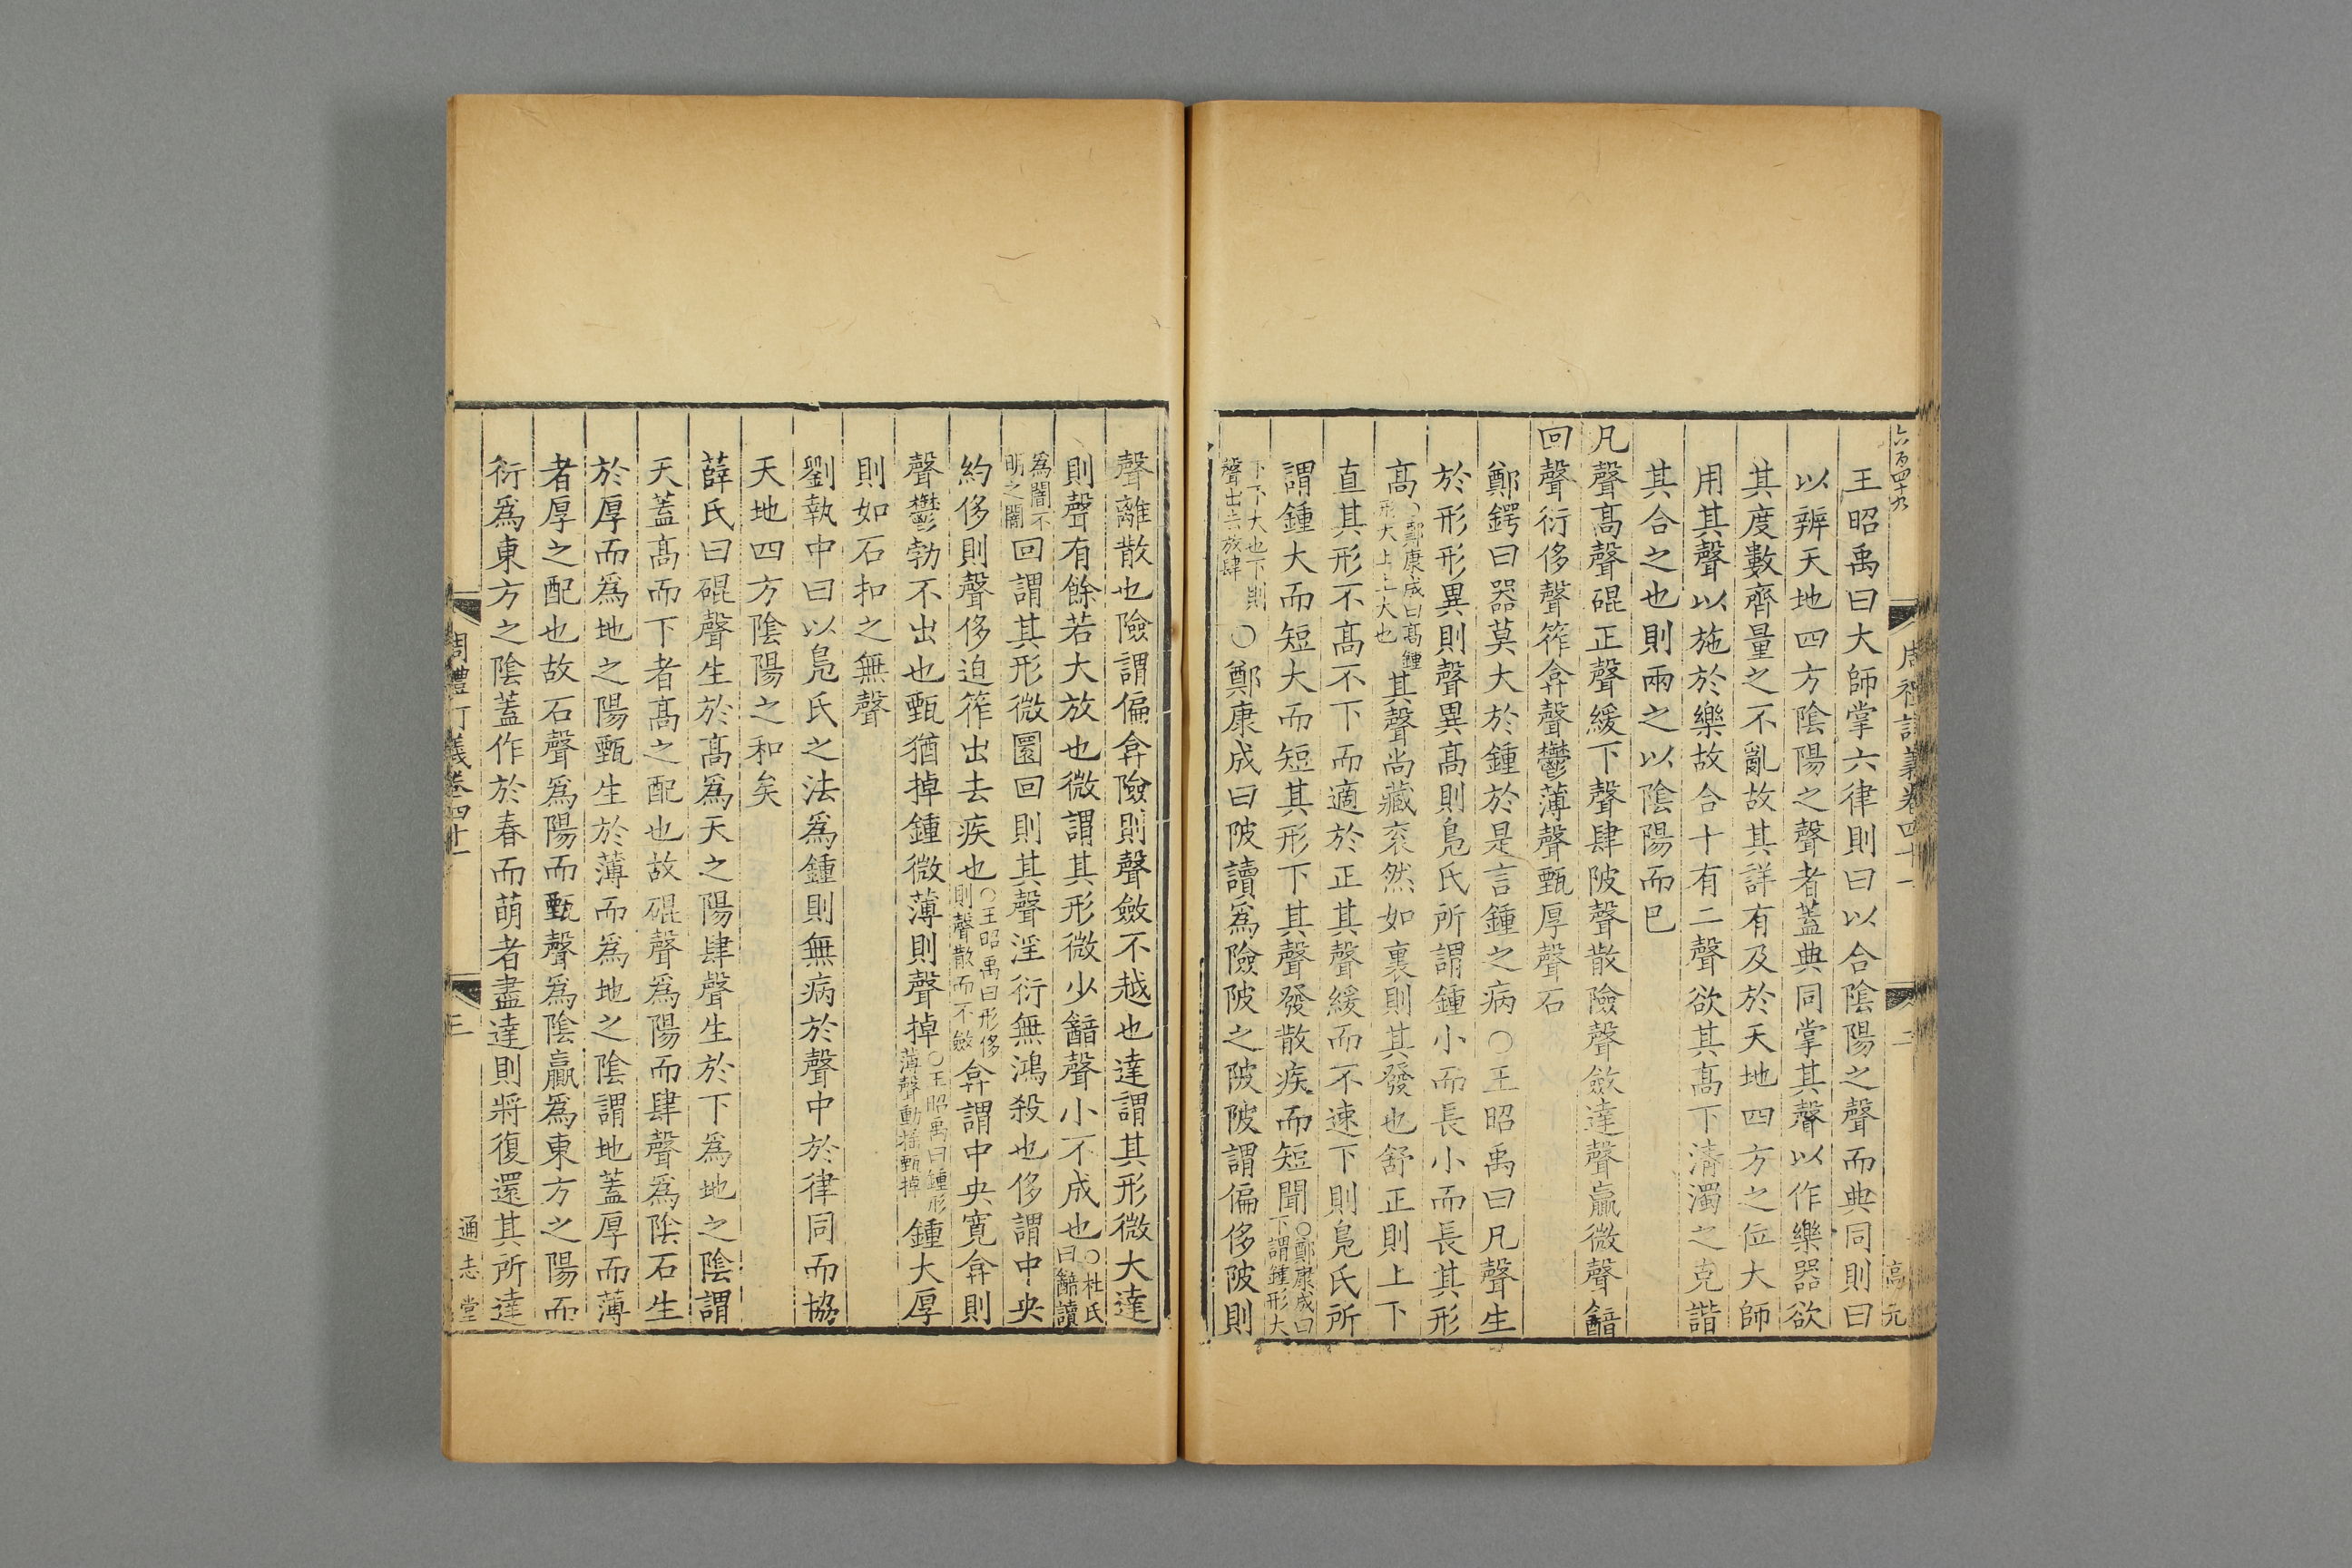 六百四十九
周禮訂義卷四十一
二
高元
王昭禹曰大師掌六律則曰以合陰陽之聲而典同則曰
以辨天地四方陰陽之聲者蓋典同掌其聲以作樂器欲
其度數齊量之不亂故其詳有及於天地四方之位大師
用其聲以施於樂故合十有二聲欲其髙下清濁之克諧
其合之也則兩之以陰陽而巳
凡聲髙聲䃂正聲緩下聲肆陂聲散險聲斂達聲贏微聲韽
回聲衍侈聲筰弇聲鬱薄聲甄厚聲石
鄭鍔曰器莫大於鍾於是言鍾之病○王昭禹曰凡聲生
於形形異則聲異髙則鳧氏所謂鍾小而長小而長其形
髙○鄭康成曰髙鍾形大上上大也其聲尚藏衮然如裏則其發也舒正則上下
直其形不髙不下而適於正其聲緩而不速下則鳧氏所
謂鍾大而短大而短其形下其聲發散疾而短聞○鄭康成曰下謂鍾形大
下下大也下則聲出去放肆○鄭康成曰陂讀爲險陂之陂陂謂偏侈陂則
聲離散也險謂偏弇險則聲斂不越也達謂其形微大達
則聲有餘若大放也微謂其形微少韽聲小不成也○杜氏曰韽讀
爲闇不明之闇回謂其形微圜回則其聲淫衍無鴻殺也侈謂中央
約侈則聲侈迫筰出去疾也○王昭禹曰形侈則聲散而不斂弇謂中央寛弇則
聲鬱勃不出也甄猶掉鍾微薄則聲掉○王昭禹曰鍾形薄聲動搖甄掉鍾大厚
則如石扣之無聲
劉執中曰以鳧氏之法爲鍾則無病於聲中於律同而協
天地四方陰陽之和矣
薛氏曰䃂聲生於髙爲天之陽肆聲生於下爲地之陰謂
天蓋髙而下者髙之配也故䃂聲爲陽而肆聲爲陰石生
於厚而爲地之陽甄生於薄而爲地之陰謂地蓋厚而薄
者厚之配也故石聲爲陽而甄聲爲陰贏爲東方之陽而
衍爲東方之陰蓋作於春而萌者盡達則將復還其所達
周禮訂義卷四十一
三
通志堂